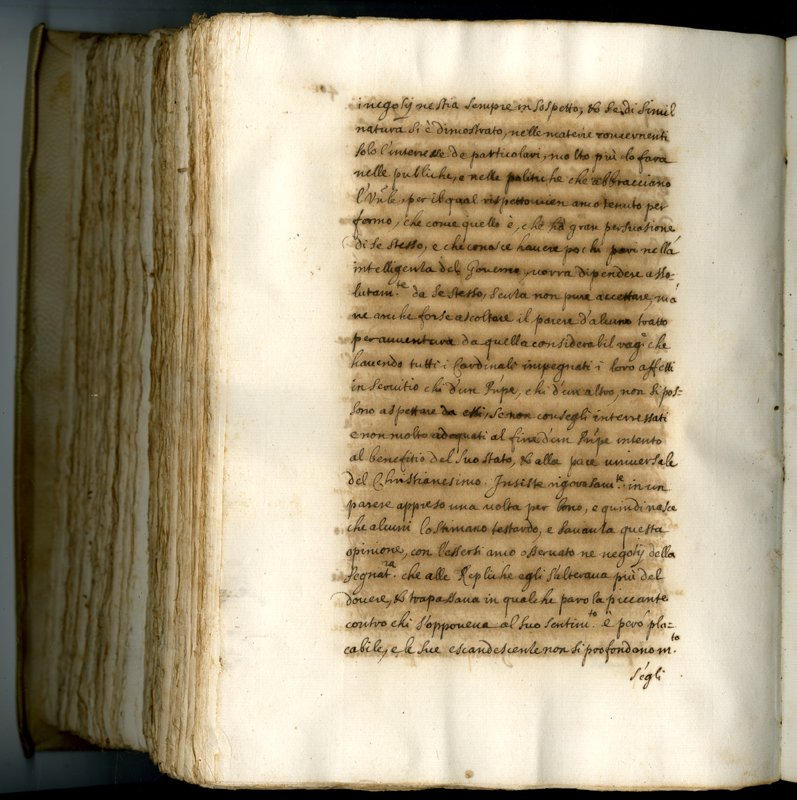 i negotij nestia sempre in sospetto, & se di simil
natura si è dimostrato, nelle materie concernenti
solo l'interesse de particolari, molto più lo farà
nelle publiche, e nelle politiche che abbracciano
l'Vnle, per il qual rispetto vien anco tenuto per
fermo, che come quello è, che hà gran persuasione
di se stesso, e che conosce hauere pochi pari nella
intelligenza del Gouerno, uorra dipendere asso-
lutam.te da se stesso, senza non pure accettare, mà
ne anche forse ascoltare il parere d'alcuno tratto
per auuentura da quella considerabil rag.e che
hauendo tutti i Cardinali impegnati i loro affetti
in seruitio chi d'un Prnpe, chi d'un altro, non si pos-
sono aspettare da essi, se non consegli interressati
e non molto adequati al fine d'un Prnpe intento
al benefitio del suo stato, & alla pace uniuersale
del Christianesimo. Insiste rigorosam.te in un
parere appreso una uolta per bono, e quindi nasce
che alcuni lo stimano testardo, e s'auanza questa
opinione, con l'essersi anco osseruato ne negotij della
Segnat.ra che alle Repliche egli s'alteraua più del
douere, & trapassaua in qualche parola piccante
contro chi s'opponeua al suo sentim.to è però pla-
cabile, e le sue escandescenze non si profondano m.to
s'egli